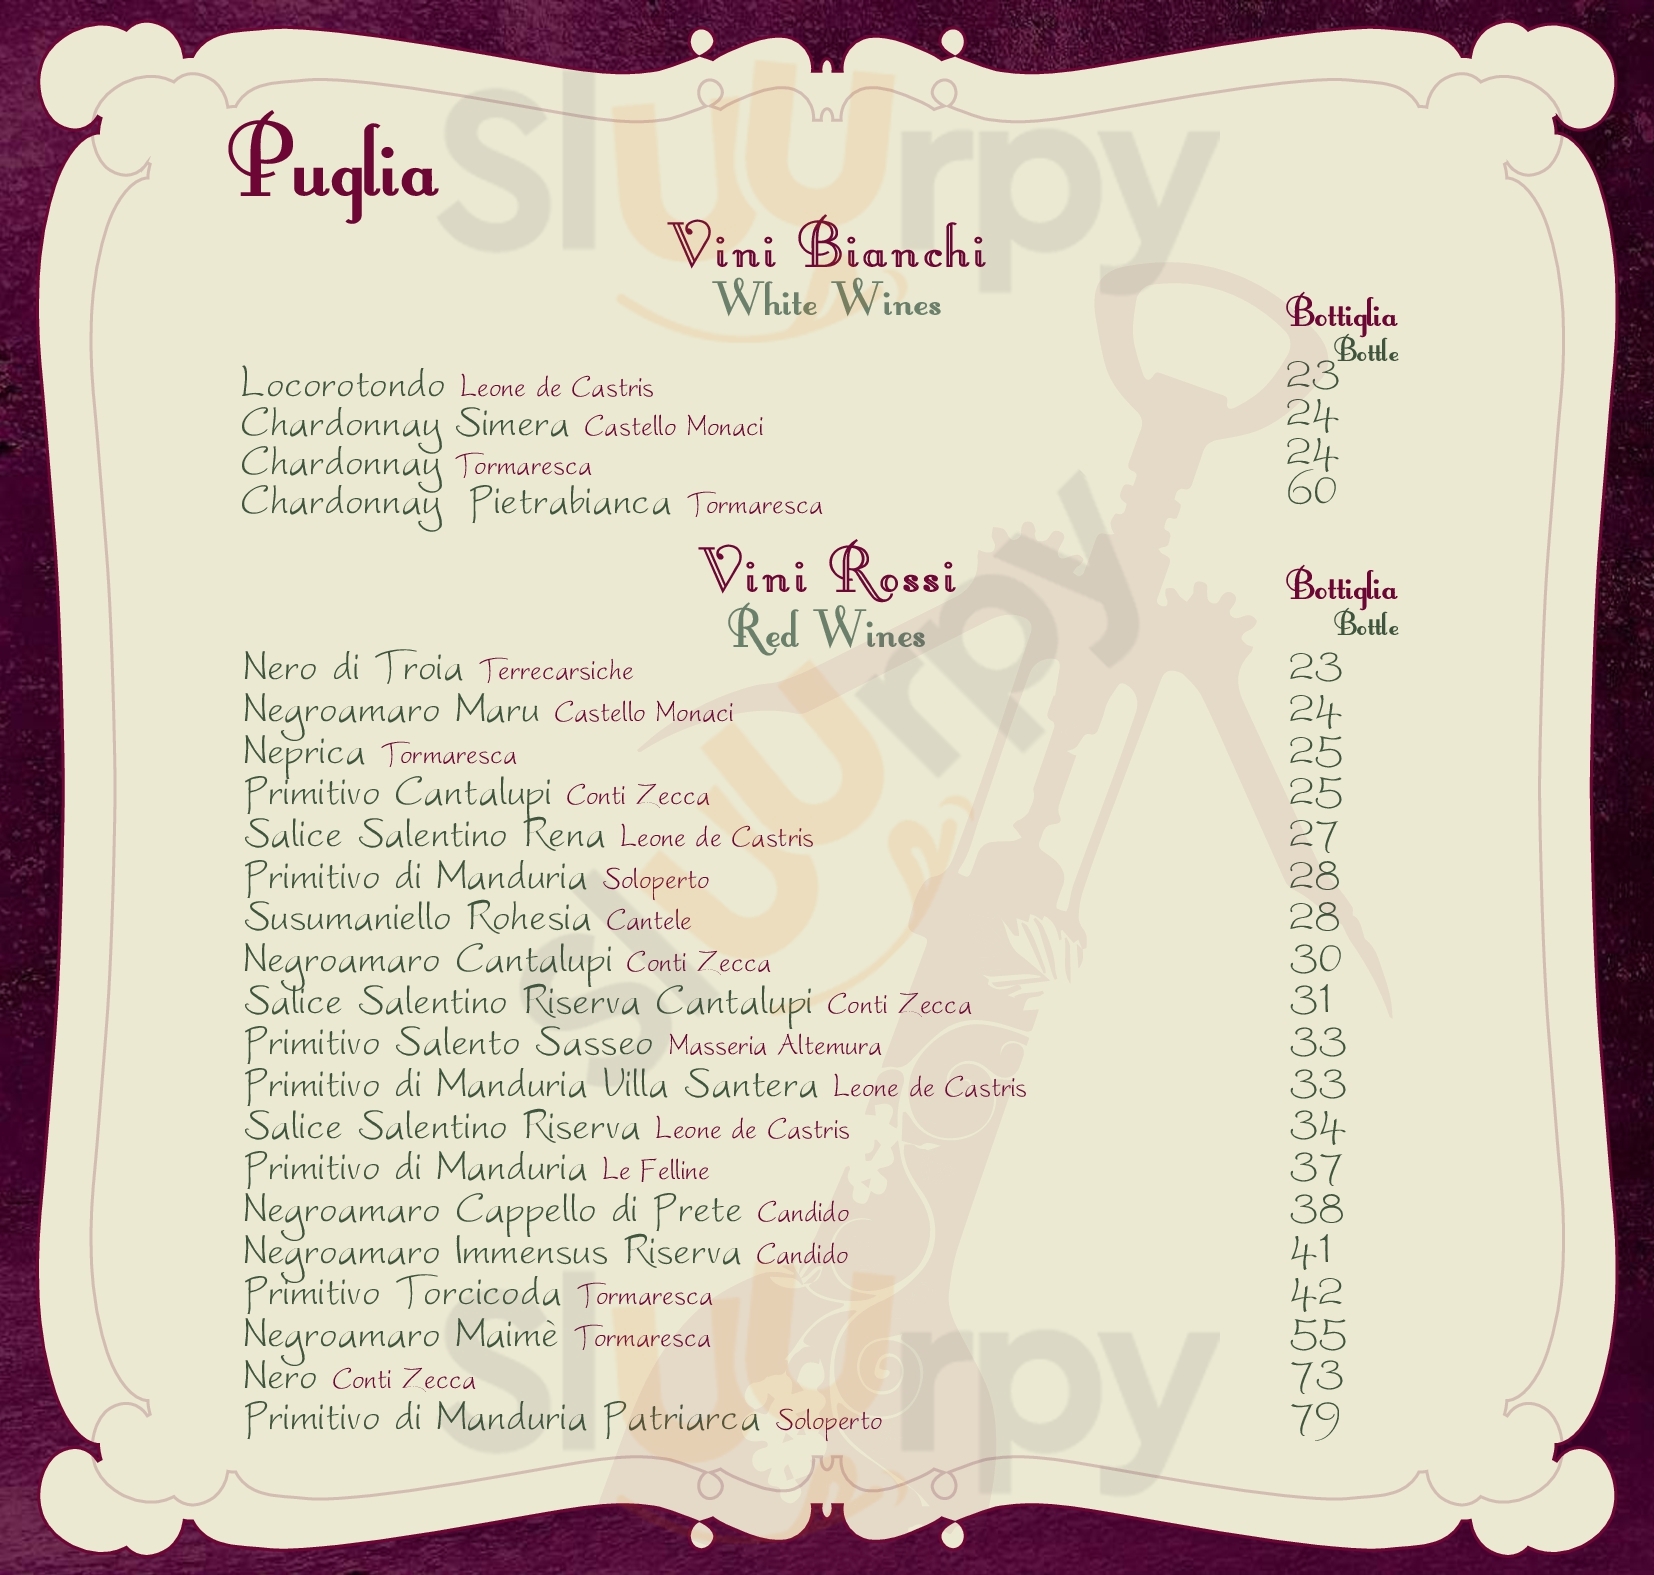 Sluurpy
Puglia
Vini Bianchi
White Wines
Bottiglia
Bottle
Locorotondo Leone de Castris 23
Chardonnay Simera Castello Monaci 24
Chardonnay Tormaresca 24
Chardonnay Pietrabianca Tormaresca 60
Vini Rossi
Red Wines
Bottiglia
Bottle
Nero di Troia Terrecarsiche 23
Negroamaro Maru Castello Monaci 24
Neprica Tormaresca 25
Primitivo Cantalupi Conti Zecca 25
Salice Salentino Rena Leone de Castris 27
Primitivo di Manduria Soloperto 28
Susumaniello Rohesia Cantele 28
Negroamaro Cantalupi Conti Zecca 30
Salice Salentino Riserva Cantalupi Conti Zecca 31
Primitivo Salento Sasseo Masseria Altemura 33
Primitivo di Manduria Villa Santera Leone de Castris 33
Salice Salentino Riserva Leone de Castris 34
Primitivo di Manduria Le Felline 37
Negroamaro Cappello di Prete Candido 38
Negroamaro Immensus Riserva Candido 41
Primitivo Torcicoda Tormaresca 42
Negroamaro Maimè Tormaresca 55
Nero Conti Zecca 73
Primitivo di Manduria Patriarca Soloperto 79
Sluurpy
Sluurpy